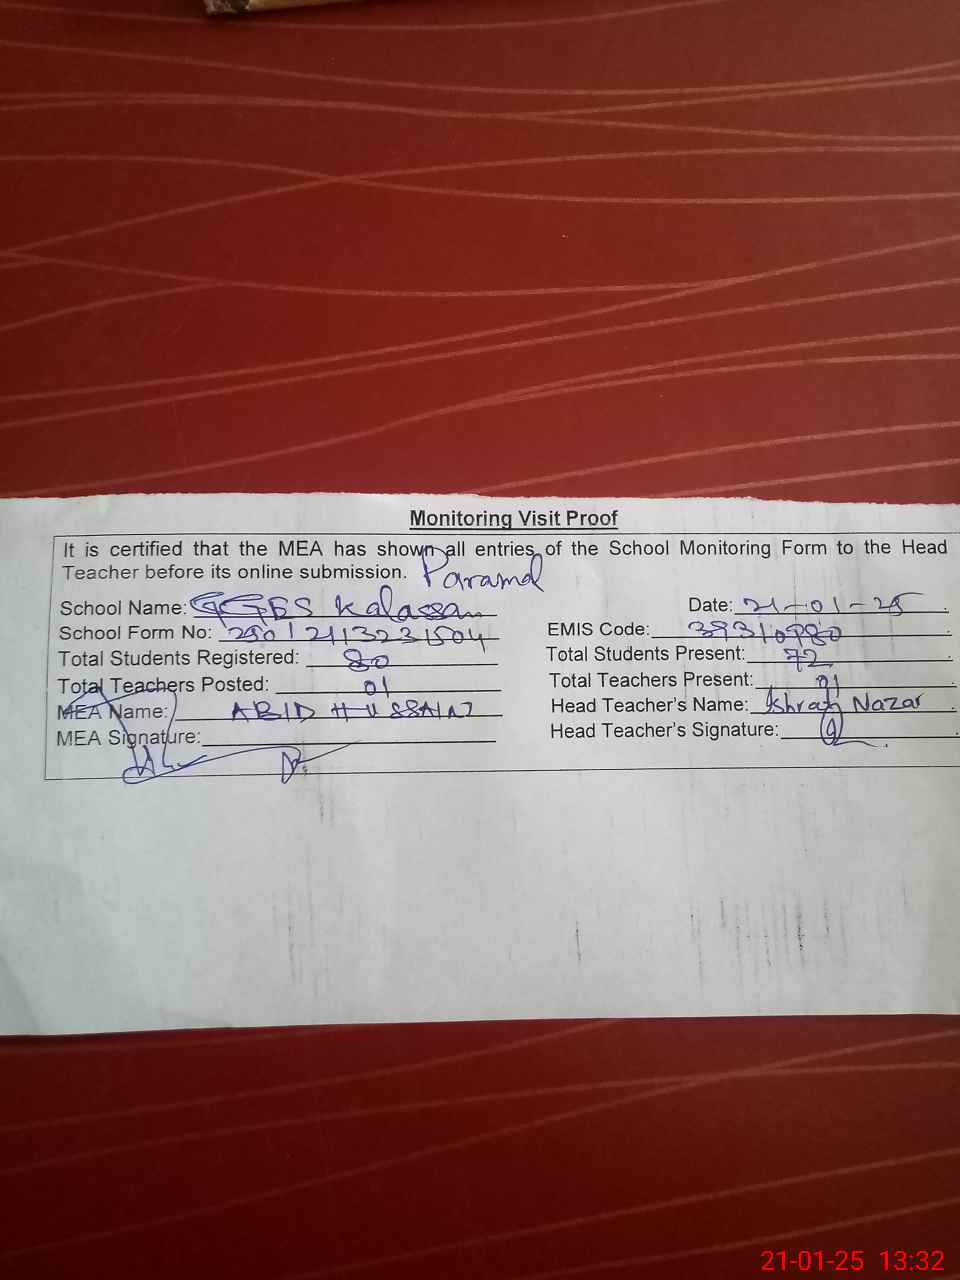 Monitoring Visit Proof
It is certified that the MEA has shown all entries of the School Monitoring Form to the Head
Teacher before its online submission.
School Name: GGES Kalassan Date: 21-01-25
School Form No: EMIS Code:
Total Students Registered: 80 Total Students Present: 72
Total Teachers Posted: 01 Total Teachers Present: 01
MEA Name: ABID HUSSAIN Head Teacher's Name: Ishrat Nazar
MEA Signature: Head Teacher's Signature:
21-01-25 13:32